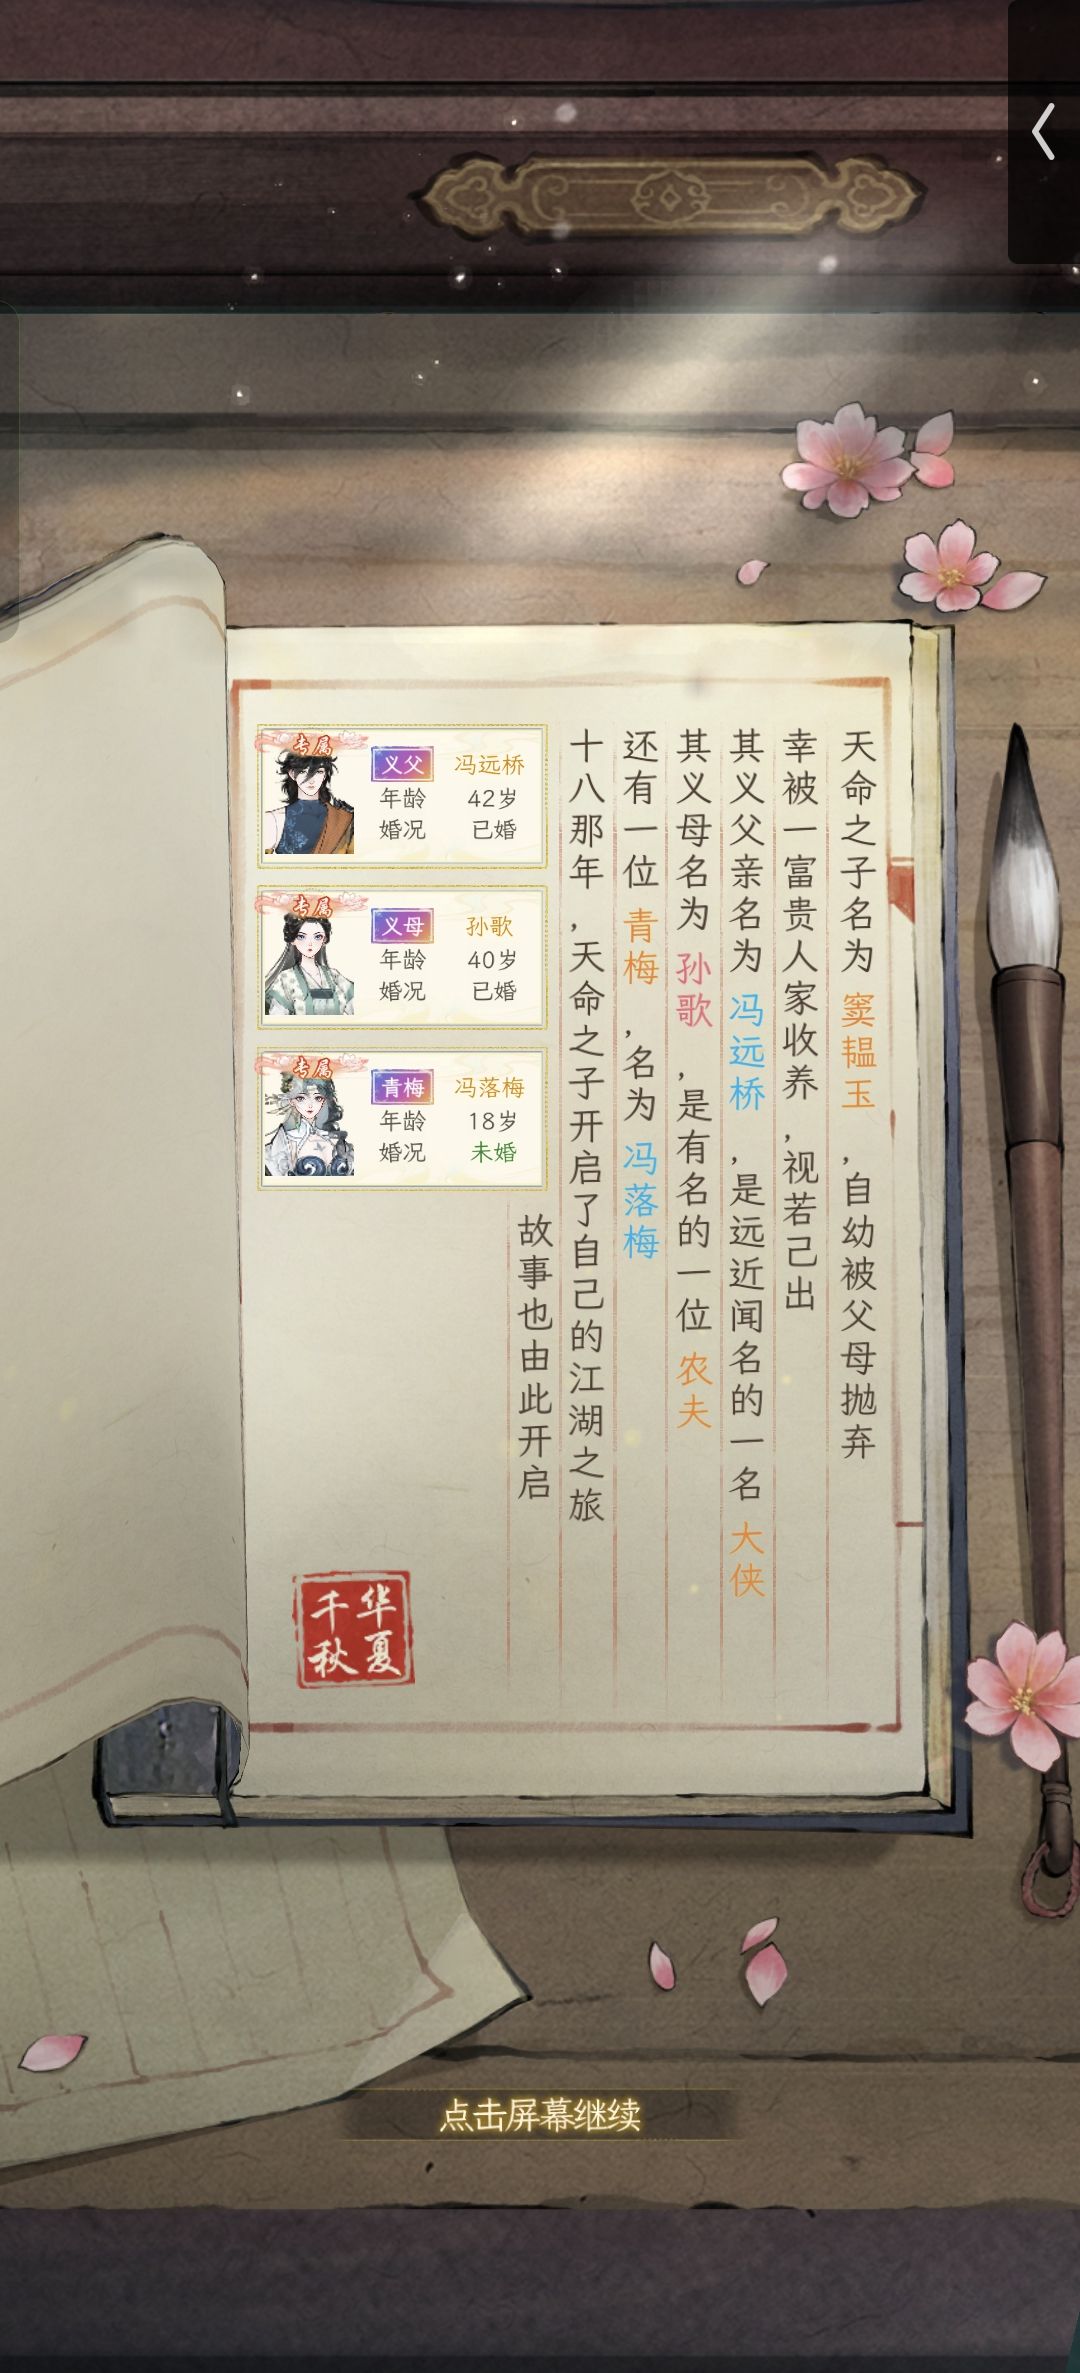 天命之子名为 窦韫玉 ，自幼被父母抛弃
幸被一富贵人家收养，视若己出
其义父亲名为 冯远桥 ，是远近闻名的一名 大侠
其义母名为 孙歌 ，是有名的一位 农夫
还有一位 青梅 ，名为 冯落梅
十八那年，天命之子开启了自己的江湖之旅
故事也由此开启
专属
义父 冯远桥
年龄 42岁
婚况 已婚
专属
义母 孙歌
年龄 40岁
婚况 已婚
专属
青梅 冯落梅
年龄 18岁
婚况 未婚
华夏
千秋
点击屏幕继续